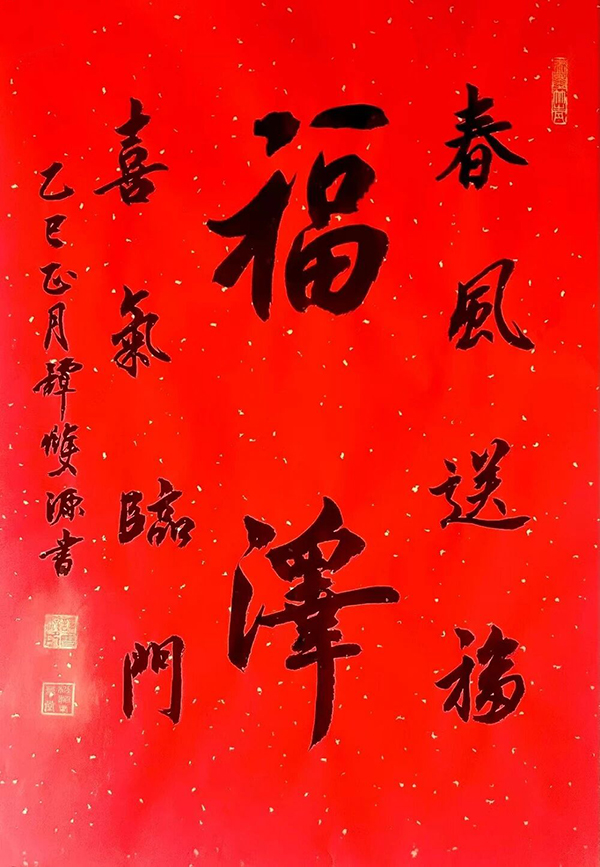 春風送福
福澤
喜氣臨門
乙巳正月譚雙源書